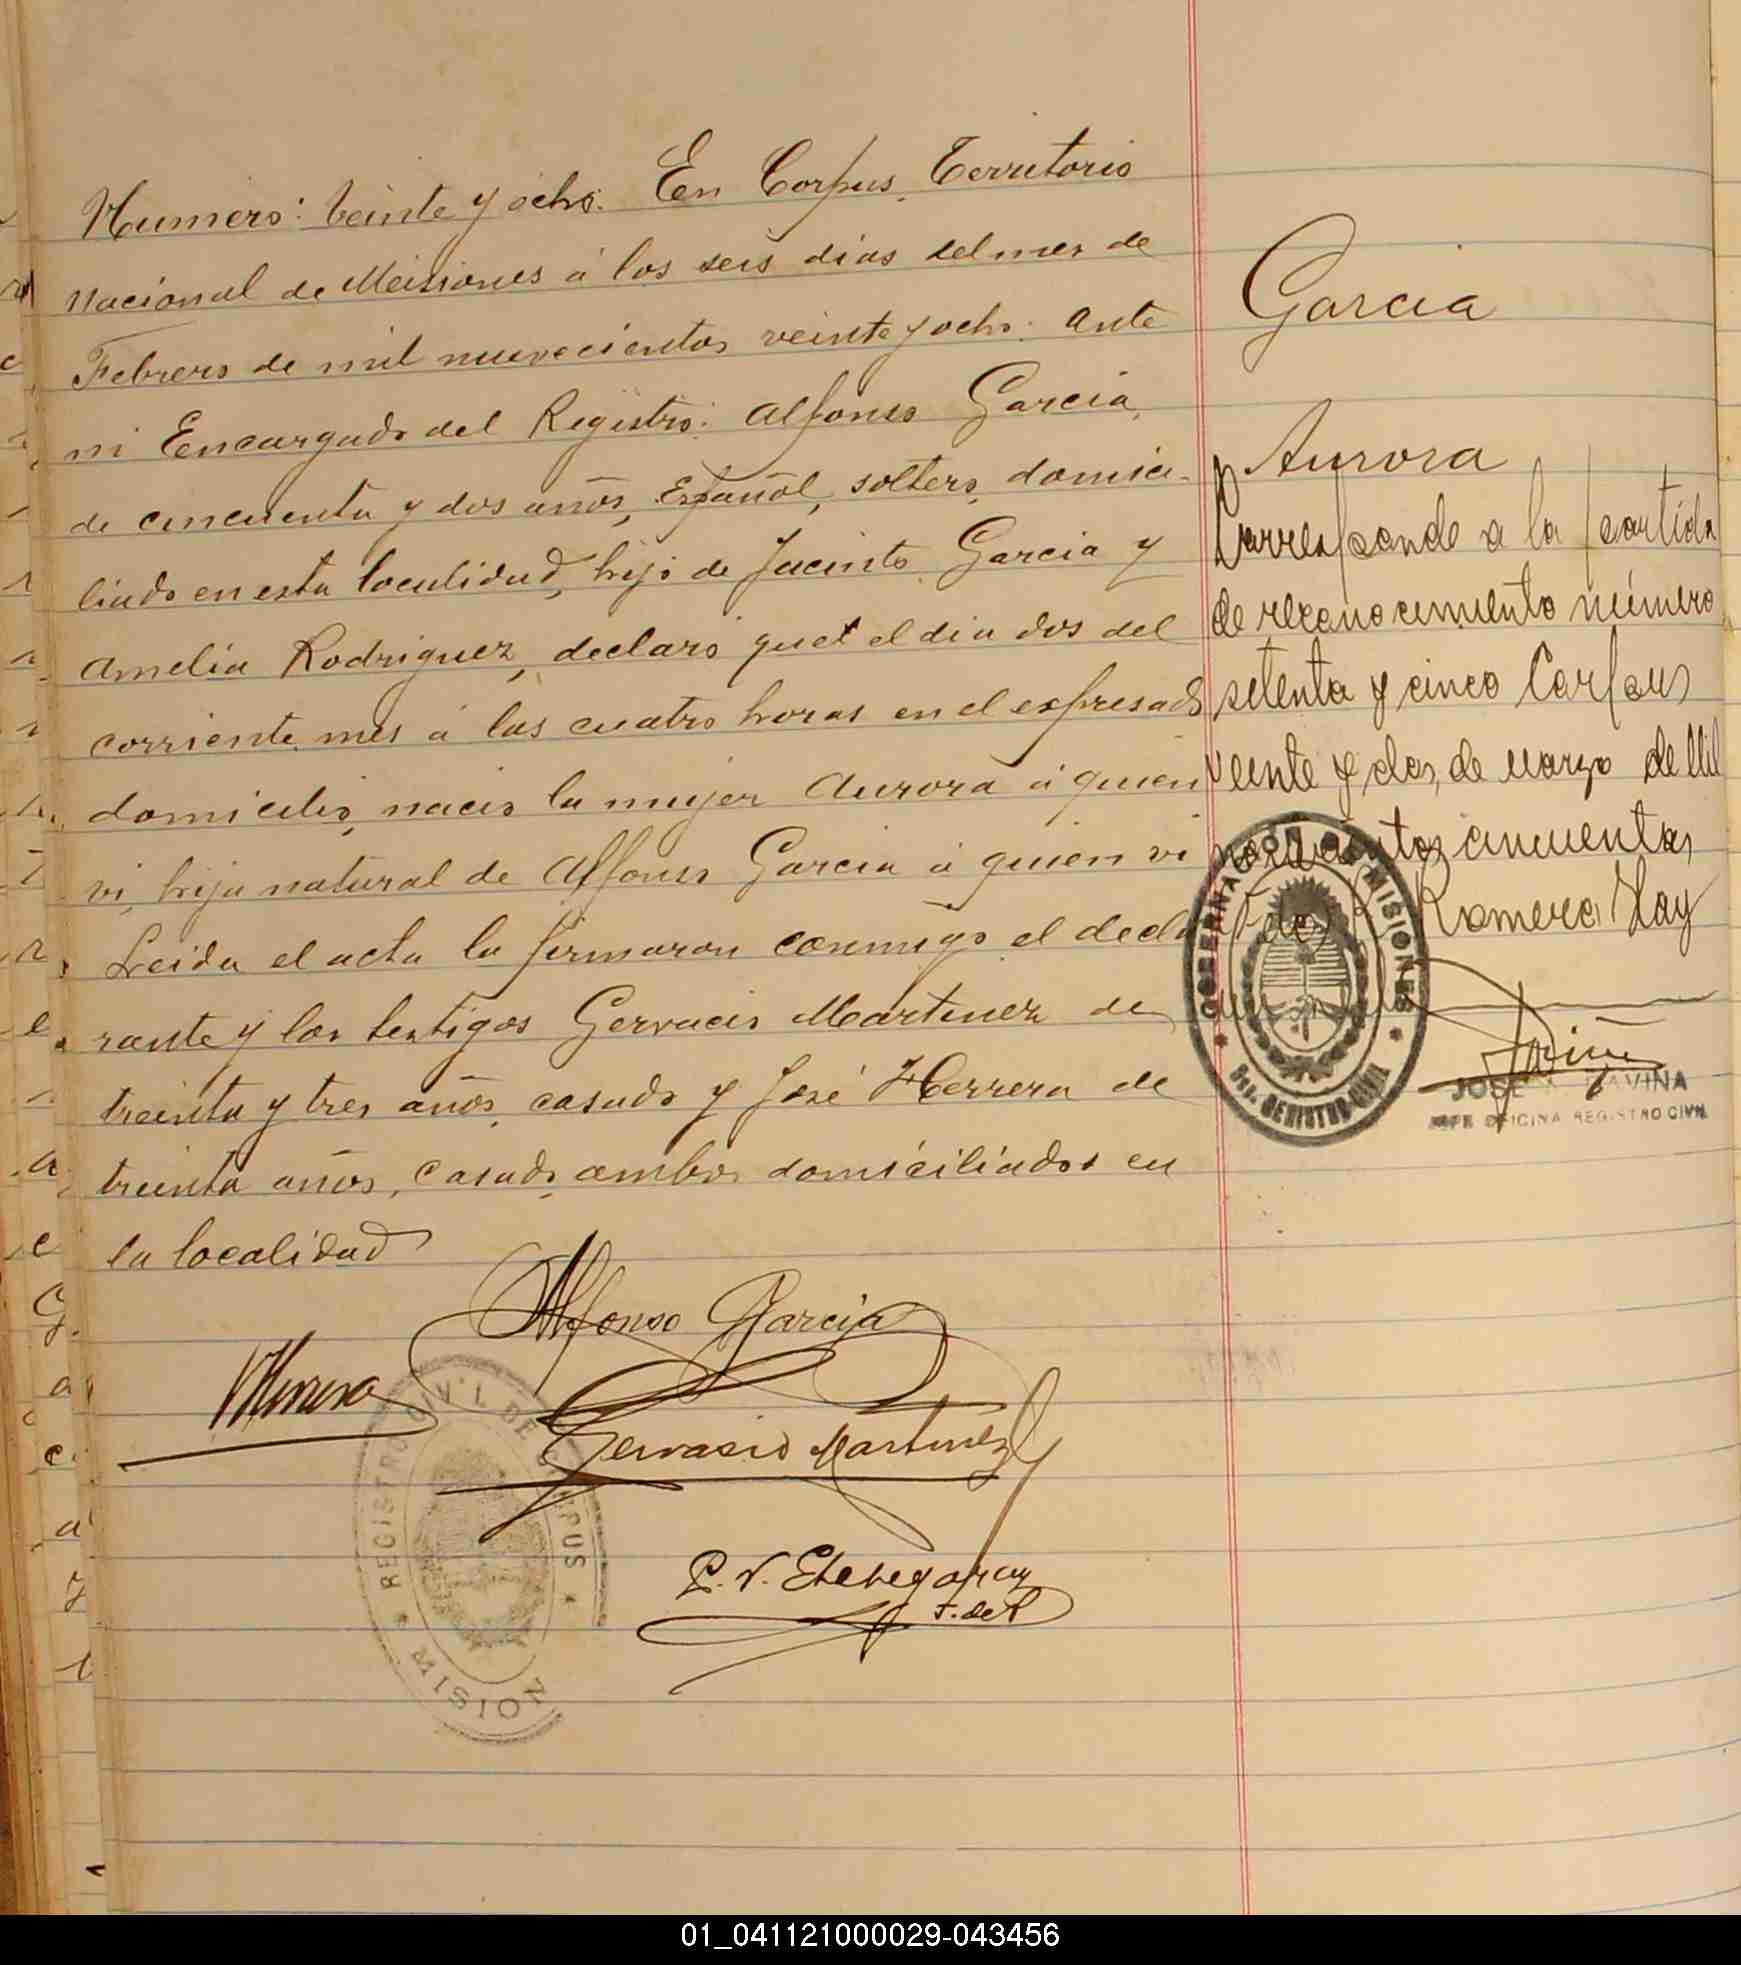 Numero: Veinte y ocho. En Corpus, Territorio
Nacional de Misiones á los seis dias del mes de
Febrero de mil nuevecientos veinte y ocho. Ante
mi Encargado del Registro: Alfonso Garcia,
de cincuenta y dos años, Español, soltero, domici-
liado en esta localidad, hijo de Jacinto Garcia y
Amelia Rodriguez, declaró que el dia dos del
corriente mes á las cuatro horas en el expresado
domicilio, nacio la mujer Aurora á quien
vi, hija natural de Alfonso Garcia á quien vi
Leida el acta la firmaron conmigo el decla
rante y los testigos Gervacio Martinez de
treinta y tres años, casado y José Herrera de
treinta años, casado, ambos domiciliados en
la localidad
Alfonso Garcia
JHerrera
Gervasio Martinez
P. V. Etchegaray
J. del R
REGISTRO CIVIL DE CORPUS
MISION
Garcia
Aurora
Corresponde a la partida
de reconocimiento número
setenta y cinco Corpus
veinte y dos, de Marzo de Mil
novecientos cincuenta
Romero Hay
GOBERNACION DE MISIONES
DEP. REGISTRO CIVIL
JOSE LAVIÑA
JEFE OFICINA REGISTRO CIVIL
01_041121000029-043456